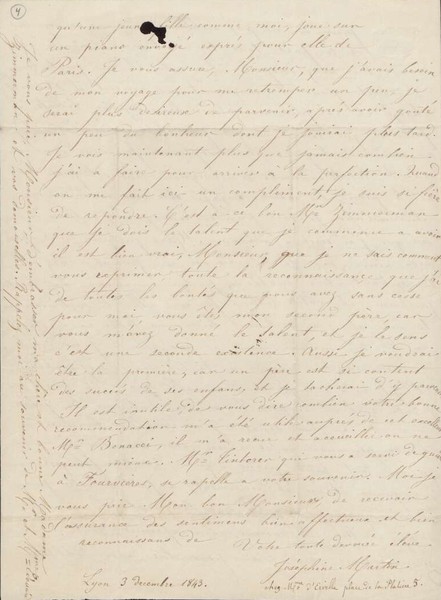 4
qu'une jeune fille comme moi, joue sur
un piano envoyé exprès pour elle de
Paris. Je vous assure, Monsieur, que j'avais besoin
de mon voyage pour me retremper un peu, je
serai plus de parvenir, après avoir gouté
un peu du bonheur dont je jouirai plus tard.
Je vois maintenant plus que jamais combien
j'ai à faire pour arriver à la perfection. Quand
on me fait ici un compliment, je suis si fière
de repondre. C'est à ce bon Mr. Zimmerman
que je dois le talent que je commence a avoir
il est bien vrai, Monsieur, que je ne sais comment
vous exprimer toute la reconnaissance que j'ai
de toutes les bontés que vous avez sans cesse
pour moi, vous êtes mon second père, car
vous m'avez donné le talent, et je le sens
c'est une seconde existence. Aussi je voudrai
être la première, car un père est si content
des succès de ses enfans et je tacherai d'y parvenir
Il est inutile de vous dire combien votre bonne
recommendation m'a été utile auprès de cet excellent
Mr. Benacci, il m'a reçue et accueillie on ne
peut mieux. Mr. qui vous a servi de guide
à Fourvières, se rapelle à votre souvenir. Moi je
vous prie Mon bon Monsieur de recevoir
l'assurance des sentimens bien affectueux et bien
reconnaissans de
Votre toute dévouée élève
Joséphine Martin
Lyon 3 decembre 1843.
chez Mme place de la Platière 3.
Je vous prie, Monsieur, d'embrasser ma chère et bonne Madame
Zimmerman et vos demoiselles. Rappelez moi au souvenir de